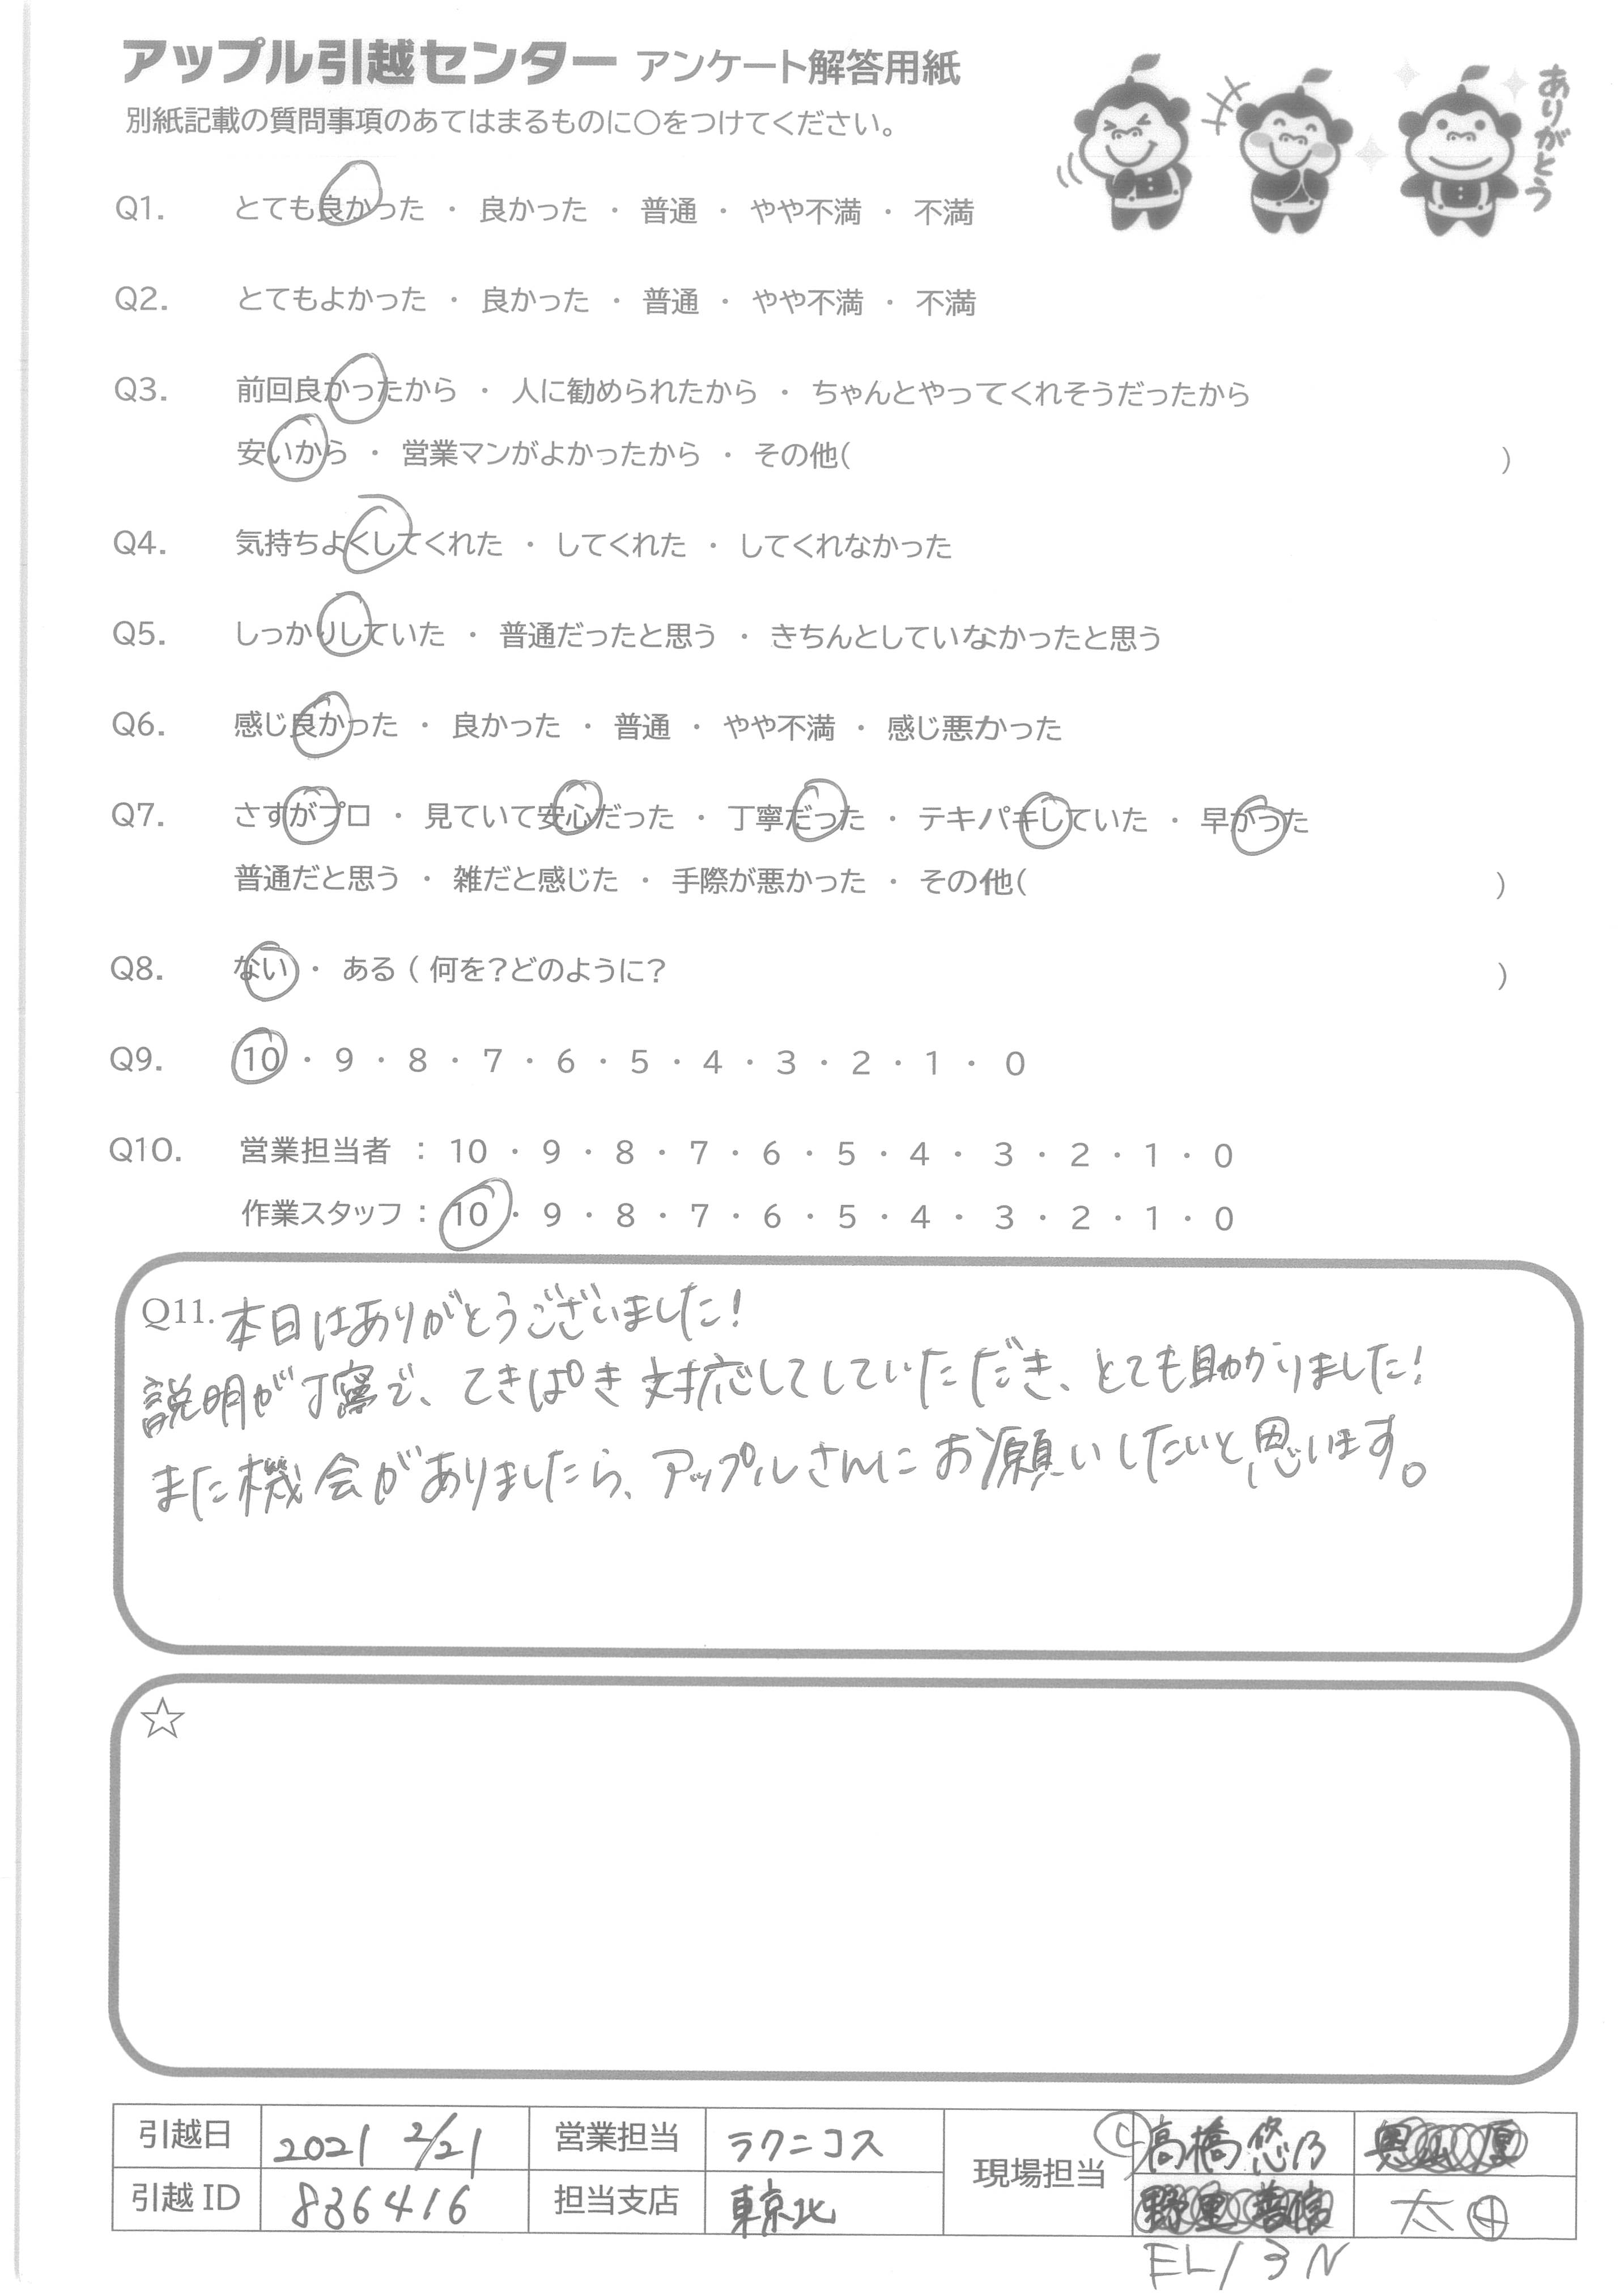 アップル引越センター アンケート解答用紙
別紙記載の質問事項のあてはまるものに○をつけてください。
ありがとう
Q1. とても良かった ・ 良かった ・ 普通 ・ やや不満 ・ 不満
Q2. とてもよかった ・ 良かった ・ 普通 ・ やや不満 ・ 不満
Q3. 前回良かったから ・ 人に勧められたから ・ ちゃんとやってくれそうだったから
安いから ・ 営業マンがよかったから ・ その他( )
Q4. 気持ちよくしてくれた ・ してくれた ・ してくれなかった
Q5. しっかりしていた ・ 普通だったと思う ・ きちんとしていなかったと思う
Q6. 感じ良かった ・ 良かった ・ 普通 ・ やや不満 ・ 感じ悪かった
Q7. さすがプロ ・ 見ていて安心だった ・ 丁寧だった ・ テキパキしていた ・ 早かった
普通だと思う ・ 雑だと感じた ・ 手際が悪かった ・ その他( )
Q8. ない ・ ある ( 何を?どのように? )
Q9. 10 ・ 9 ・ 8 ・ 7 ・ 6 ・ 5 ・ 4 ・ 3 ・ 2 ・ 1 ・ 0
Q10. 営業担当者 : 10 ・ 9 ・ 8 ・ 7 ・ 6 ・ 5 ・ 4 ・ 3 ・ 2 ・ 1 ・ 0
作業スタッフ : 10 ・ 9 ・ 8 ・ 7 ・ 6 ・ 5 ・ 4 ・ 3 ・ 2 ・ 1 ・ 0
Q11. 本日はありがとうございました!
説明が丁寧で、てきぱき対応してしていただき、とても助かりました!
また機会がありましたら、アップルさんにお願いしたいと思います。
☆
引越日 2021 2/21 営業担当 ラクニコス 現場担当 Ⓛ高橋 悠乃
引越ID 836416 担当支店 東京北 太田
EL/3N